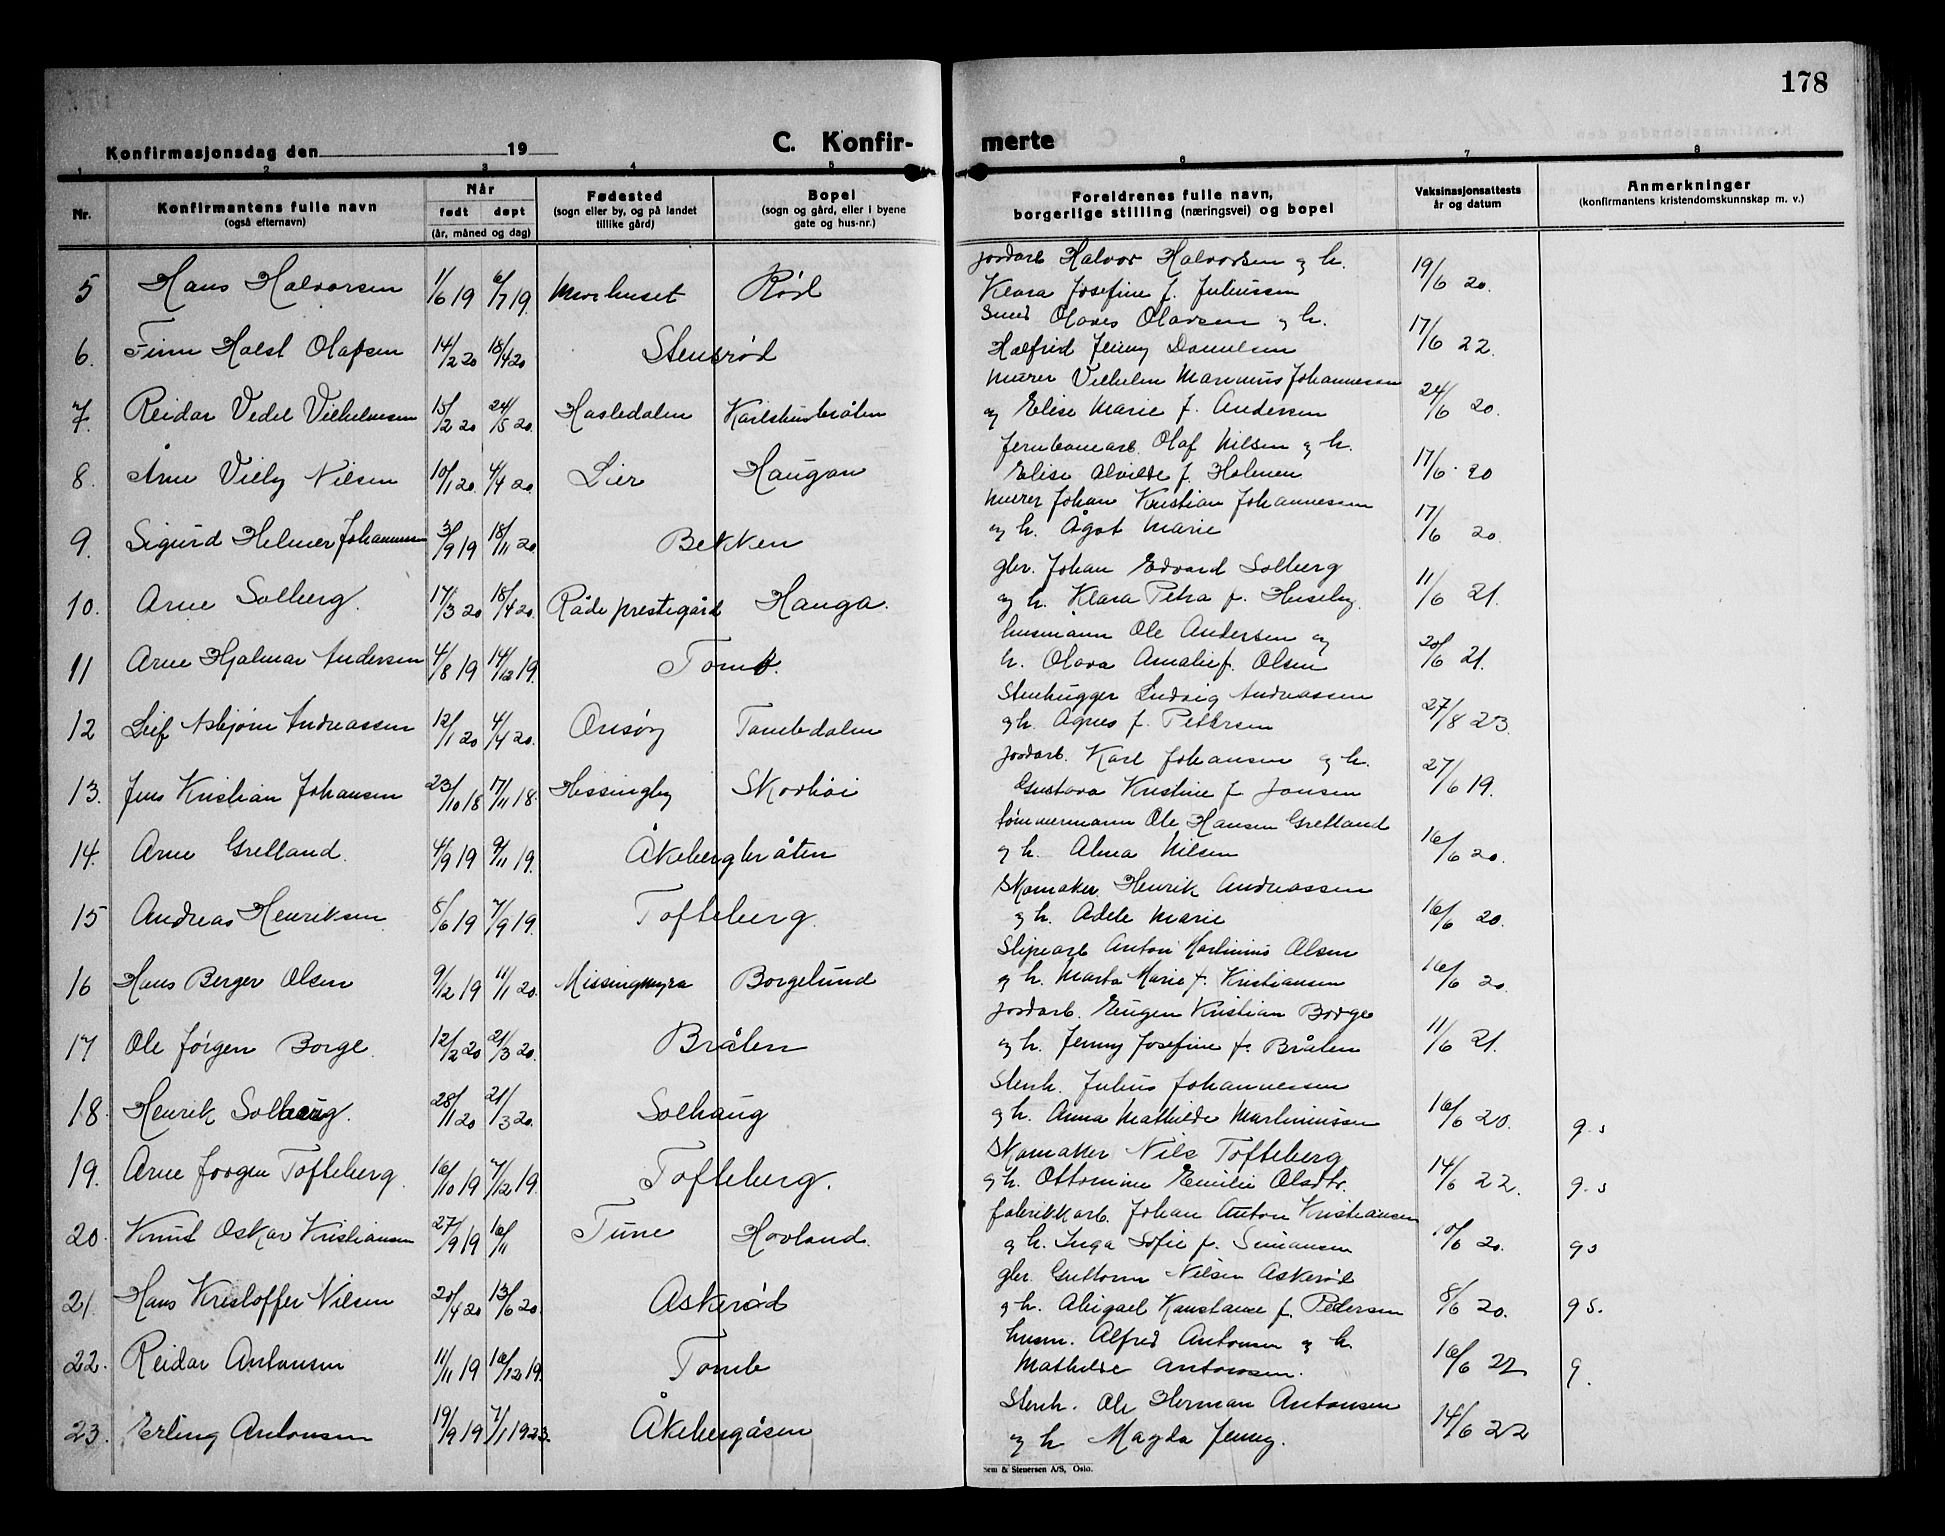 178
Konfirmasjonsdag den 19
C. Konfir-
merte
1 2 3 4 5 6 7 8
Nr.
Konfirmantens fulle navn
(også efternavn)
Når
født døpt
(år, måned og dag)
Fødested
(sogn eller by, og på landet
tillike gård)
Bopel
(sogn og gård, eller i byene
gate og hus-nr.)
Foreldrenes fulle navn,
borgerlige stilling (næringsvei) og bopel
Vaksinasjonsattests
år og datum
Anmerkninger
(konfirmantens kristendomskunnskap m. v.)
5 Hans Halvorsen 1/6 19 6/7 19. Morhuset Rød
Jordarb Halvor Halvorsen og h.
Klara Josefine f. Juliussen 19/6 20.
6. Finn Holst Olafsen 14/2 20 18/4 20 Stensrød
Smed Olaves Olavsen og h.
Halfrid Jenny Danielsen 17/6 22.
7. Reidar Vedel Vilhelmsen 15/2 20 24/5 20. Hasledalen Karlshusbråten
Murer Vilhelm Marinius Johannesen
og Elise Marie f. Andersen 24/6 20.
8. Arne Villy Nilsen 10/1 20. 4/4 20. Lier Haugan
Jernbanearb. Olaf Nilsen og h.
Elise Alvilde f. Holmen 17/6 20
9. Sigurd Helmer Johannessen 3/9 19 18/11 20. Bekken
Murer Johan Kristian Johannessen
og h. Ågot Marie 17/6 20.
10. Arne Solberg. 17/3 20 18/4 20. Råde prestegård Hauga.
gbr. Johan Edvard Solberg
og h. Klara Petra f. Huseby. 11/6 21.
11 Arne Hjalmar Andersen 4/8 19 14/12 19. Tomb.
husmann Ole Andersen og
h. Olava Amalie f. Olsen 20/6 21.
12 Leif Asbjørn Andreassen 12/1 20 4/4 20. Onsøy Tombedalen
Stenhugger Ludvig Andreassen
og h. Agnes f. Pettersen 27/8 23.
13. Jens Kristian Johansen 23/10 18 17/11 18. Hissingby Skovhøi
Jordarb. Karl Johansen og h.
Gustava Kristine f. Jansen 27/6 19.
14. Arne Grelland. 4/9 19 9/11 19. Åkebergbråten
tømmermann Ole Hansen Grelland
og h. Alma Nilsen 16/6 20.
15 Andreas Henriksen 8/6 19 7/9 19. Tofteberg.
Skomaker Henrik Andreassen
og h. Adele Marie 16/6 20.
16 Hans Berger Olsen 9/12 19 11/1 20. Missingmyra Borgelund
Sliperarb Anton Martinius Olsen
og h. Marta Marie f. Kristiansen 16/6 20.
17 Ole Jørgen Borge. 12/2 20 21/3 20. Bråten
Jordarb. Eugen Kristian Borge
og h. Jenny Josefine f. Bråten 11/6 21.
18. Henrik Solhaug. 28/1 20 21/3 20. Solhaug
Stenh. Julius Johannessen
og h. Anna Mathilde Martiniussen 16/6 20. g.s
19. Arne Jørgen Tofteberg. 16/10 19 7/12 19. Tofteberg.
Skomaker Nils Tofteberg
og h. Ottomine Emilie Olsdtr. 14/6 22. g.s
20. Knut Oskar Kristiansen 27/9 19 16/11 Tune Hovland.
fabrikkarb. Johan Anton Kristiansen
og h. Inga Sofie f. Simansen 10/6 20. gs
21. Hans Kristoffer Nilsen 20/4 20 13/6 20. Askerød
gbr. Guttorm Nilsen Askerød
og h. Abigael Konstanse f. Pedersen 8/6 20. gs.
22. Reidar Antonsen 11/11 19 16/12 19. Tomb
husm. Alfred Antonsen og h.
Mathilde Antonsen. 16/6 22 g.
23. Erling Antonsen 19/9 19 7/1 1923. Åkebergåsen
Stenh. Ole Herman Antonsen
og h Magda Jenny. 14/6 22
Sem & Stenersen A/S, Oslo.